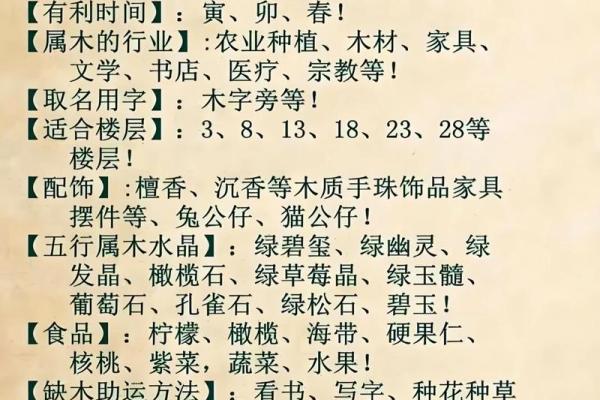 【有利时间】：寅、卯、春！
【属木的行业】:农业种植、木材、家具、
文学、书店、医疗、宗教等！
【取名用字】：木字旁等！
【适合楼层】：3、8、13、18、23、28等
楼层！
【配饰】:檀香、沉香等木质手珠饰品家具
摆件等、兔公仔、猫公仔！
【五行属木水晶】：绿碧玺、绿幽灵、绿
发晶、橄榄石、绿草莓晶、绿玉髓、
葡萄石、孔雀石、绿松石、碧玉！
【食品】：柠檬、橄榄、海带、硬果仁、
核桃、紫菜，蔬菜、水果！
【缺木助运方法】：看书、写字、种花种草